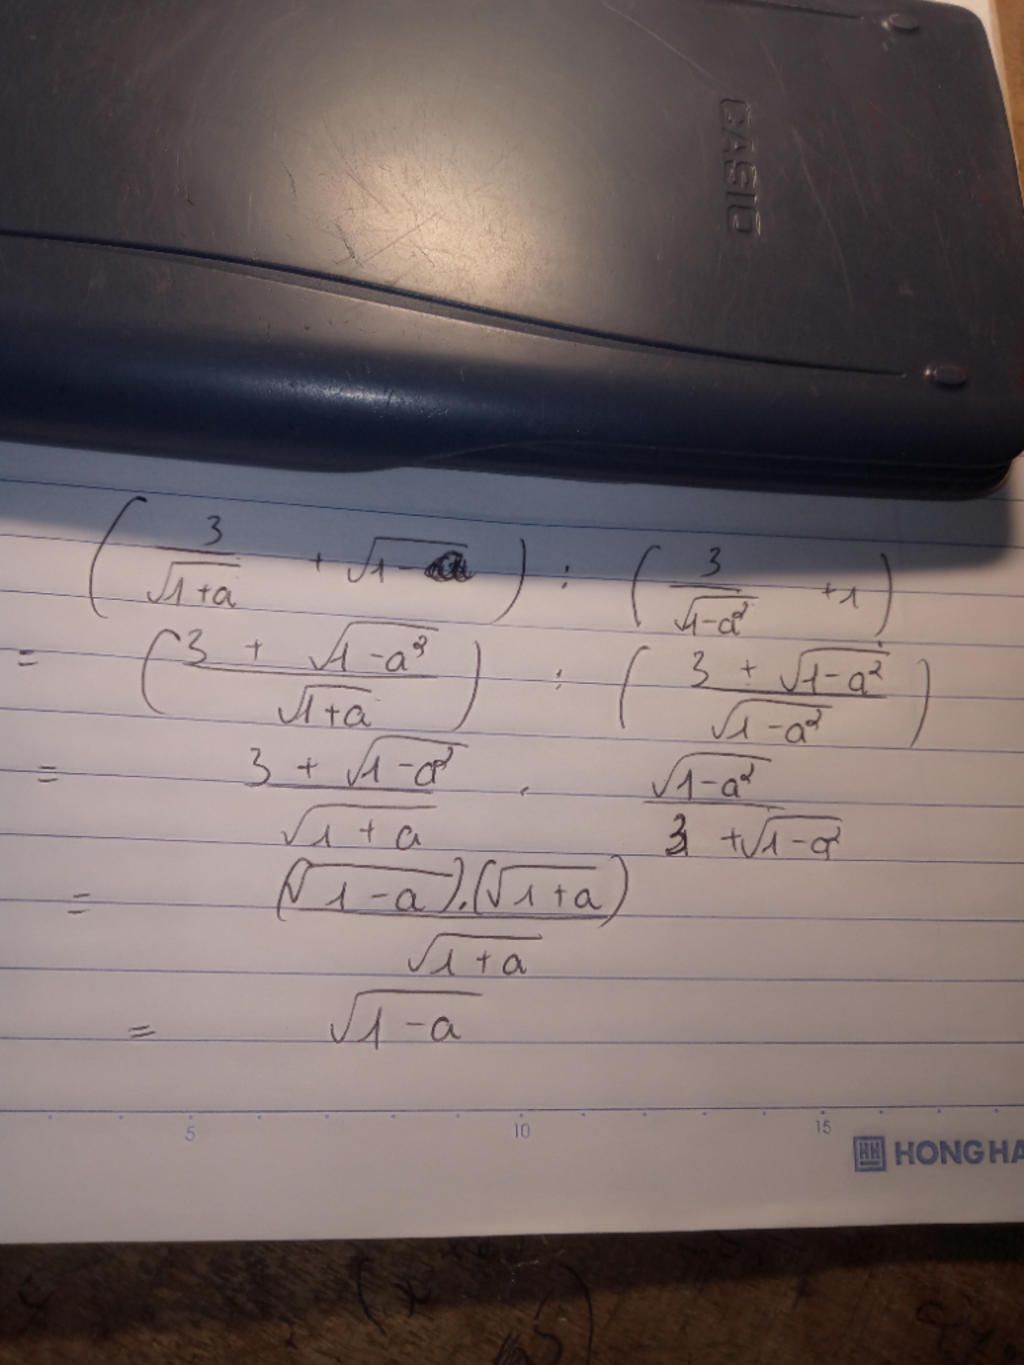 CASIO
( 3/√(1+a) + √(1-a) ) : ( 3/√(1-a²) + 1 )
= ( (3 + √(1-a²))/√(1+a) ) : ( (3 + √(1-a²))/√(1-a²) )
= (3 + √(1-a²))/√(1+a) . √(1-a²)/(3 + √(1-a²))
= (√(1-a)).(√(1+a))/√(1+a)
= √(1-a)
5 10 15
HH HONG HA